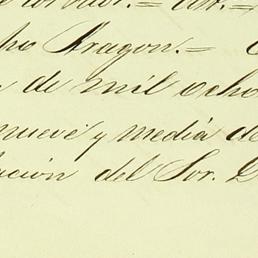 cho Aragon.=
de mil ocho
nueve y media de
ación del Sor. D